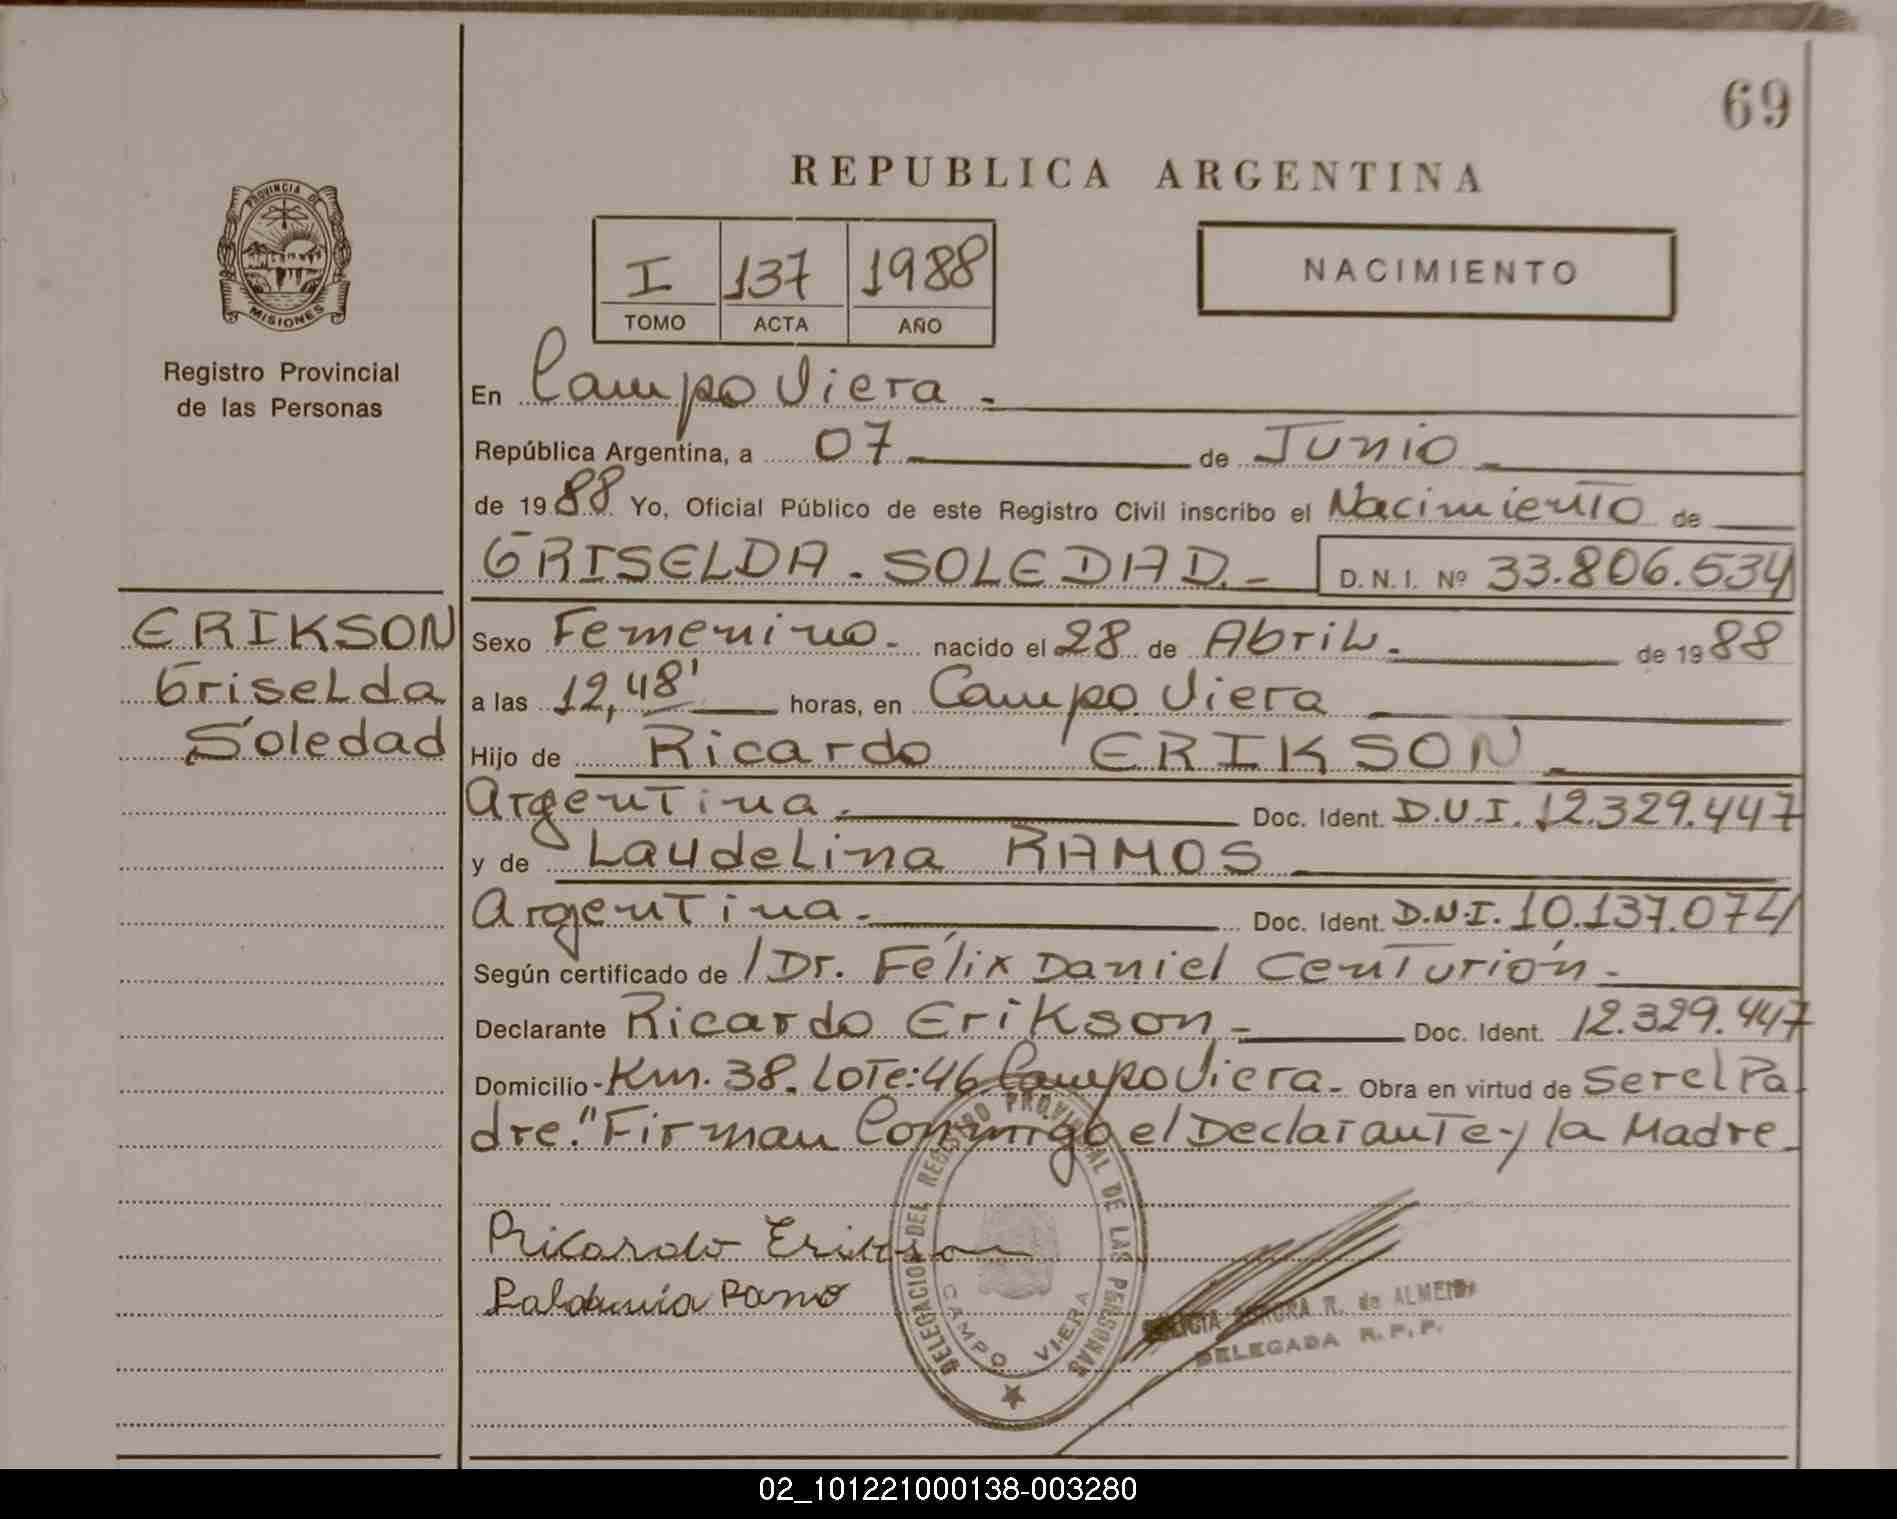 69
REPUBLICA ARGENTINA
PROVINCIA DE
MISIONES
Registro Provincial
de las Personas
I 137 1988
TOMO ACTA AÑO
NACIMIENTO
En Campo Viera.-
República Argentina, a 07 de Junio
de 1988 Yo, Oficial Público de este Registro Civil inscribo el Nacimiento de
GRISELDA. SOLEDAD.- D.N.I. Nº 33.806.534
ERIKSON
Griselda
Soledad
Sexo Femenino.- nacido el 28 de Abril.- de 1988
a las 12,48' horas, en Campo Viera
Hijo de Ricardo ERIKSON
Argentina.- Doc. Ident. D.N.I. 12.329.447
y de Laudelina RAMOS
Argentina.- Doc. Ident. D.N.I. 10.137.074
Según certificado de /Dr. Félix Daniel Centurión.-
Declarante Ricardo Erikson.- Doc. Ident. 12.329.447
Domicilio- Km. 38. Lote: 46 Campo Viera.- Obra en virtud de Ser el Pa
dre." Firman Conmigo el Declarante y la Madre.
Ricardo Erikson
DELEGACION DEL REGISTRO PROVINCIAL DE LAS PERSONAS
CAMPO VIERA
R. de ALMEIDA
DELEGADA R.P.P.
02_101221000138-003280